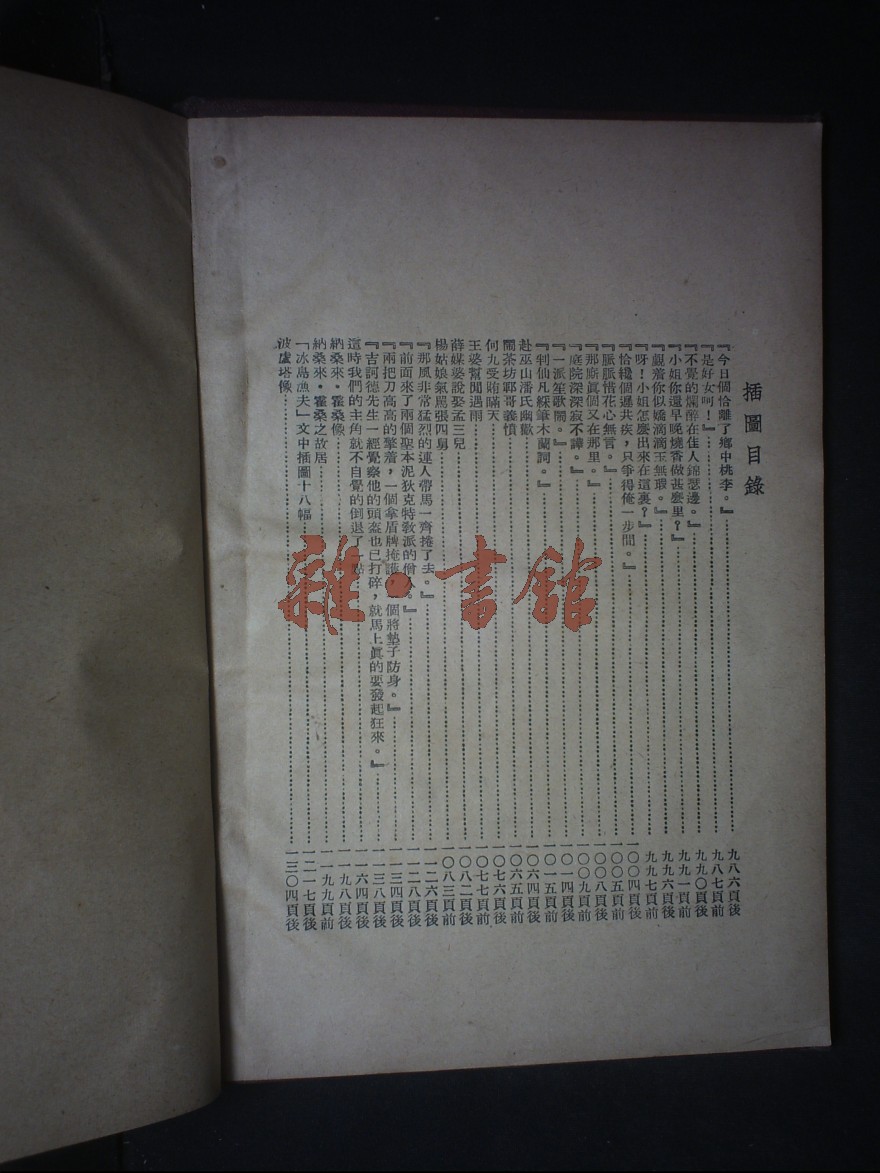 插圖目錄
『今日個恰離了鄉中桃李。』……九八六頁後
『是好女呵！』……九八七頁前
『不覺的爛醉在佳人錦瑟邊。』……九九〇頁後
『小姐你還早晚燒香做甚麼里？』……九九一頁前
『覷着你似嬌滴滴玉無瑕。』……九九六頁後
『呀！小姐怎麼出來在這裏？』……九九七頁前
『恰纔個遲共疾，只爭得俺一步間。』……一〇〇四頁後
『脈脈惜花心無言。』……一〇〇五頁前
『那廝眞個又在那里。』……一〇〇八頁後
『庭院深深寂不譁。』……一〇〇九頁前
『一派笙歌鬧。』……一〇一四頁後
『判仙凡綵筆木蘭詞。』……一〇一五頁前
赴巫山潘氏幽歡……一〇六四頁後
鬧茶坊鄆哥義憤……一〇六五頁前
何九受賄瞞天……一〇七六頁後
王婆幫閒遇雨……一〇七七頁前
薛媒婆說娶孟三兒……一〇八二頁後
楊姑娘氣罵張四舅……一〇八三頁前
『那風非常猛烈的連人帶馬一齊捲了去。』……一一二六頁後
『前面來了兩個聖本泥狄克特敎派的僧人。』……一一二八頁後
『兩把刀高高的擎着，一個拿盾牌掩護，一個將墊子防身。』……一一三四頁後
『吉訶德先生一經覺察他的頭盔也已打碎，就馬上眞的要發起狂來。』……一一三八頁後
這時我們的主角就不自覺的倒退了一點……一一六四頁後
納桑來・霍桑像……一一九八頁後
納桑來・霍桑之故居……一一九九頁前
「冰島漁夫」文中插圖十八幅……一二一七頁後
波盧塔像……一三〇四頁後
雜・書館